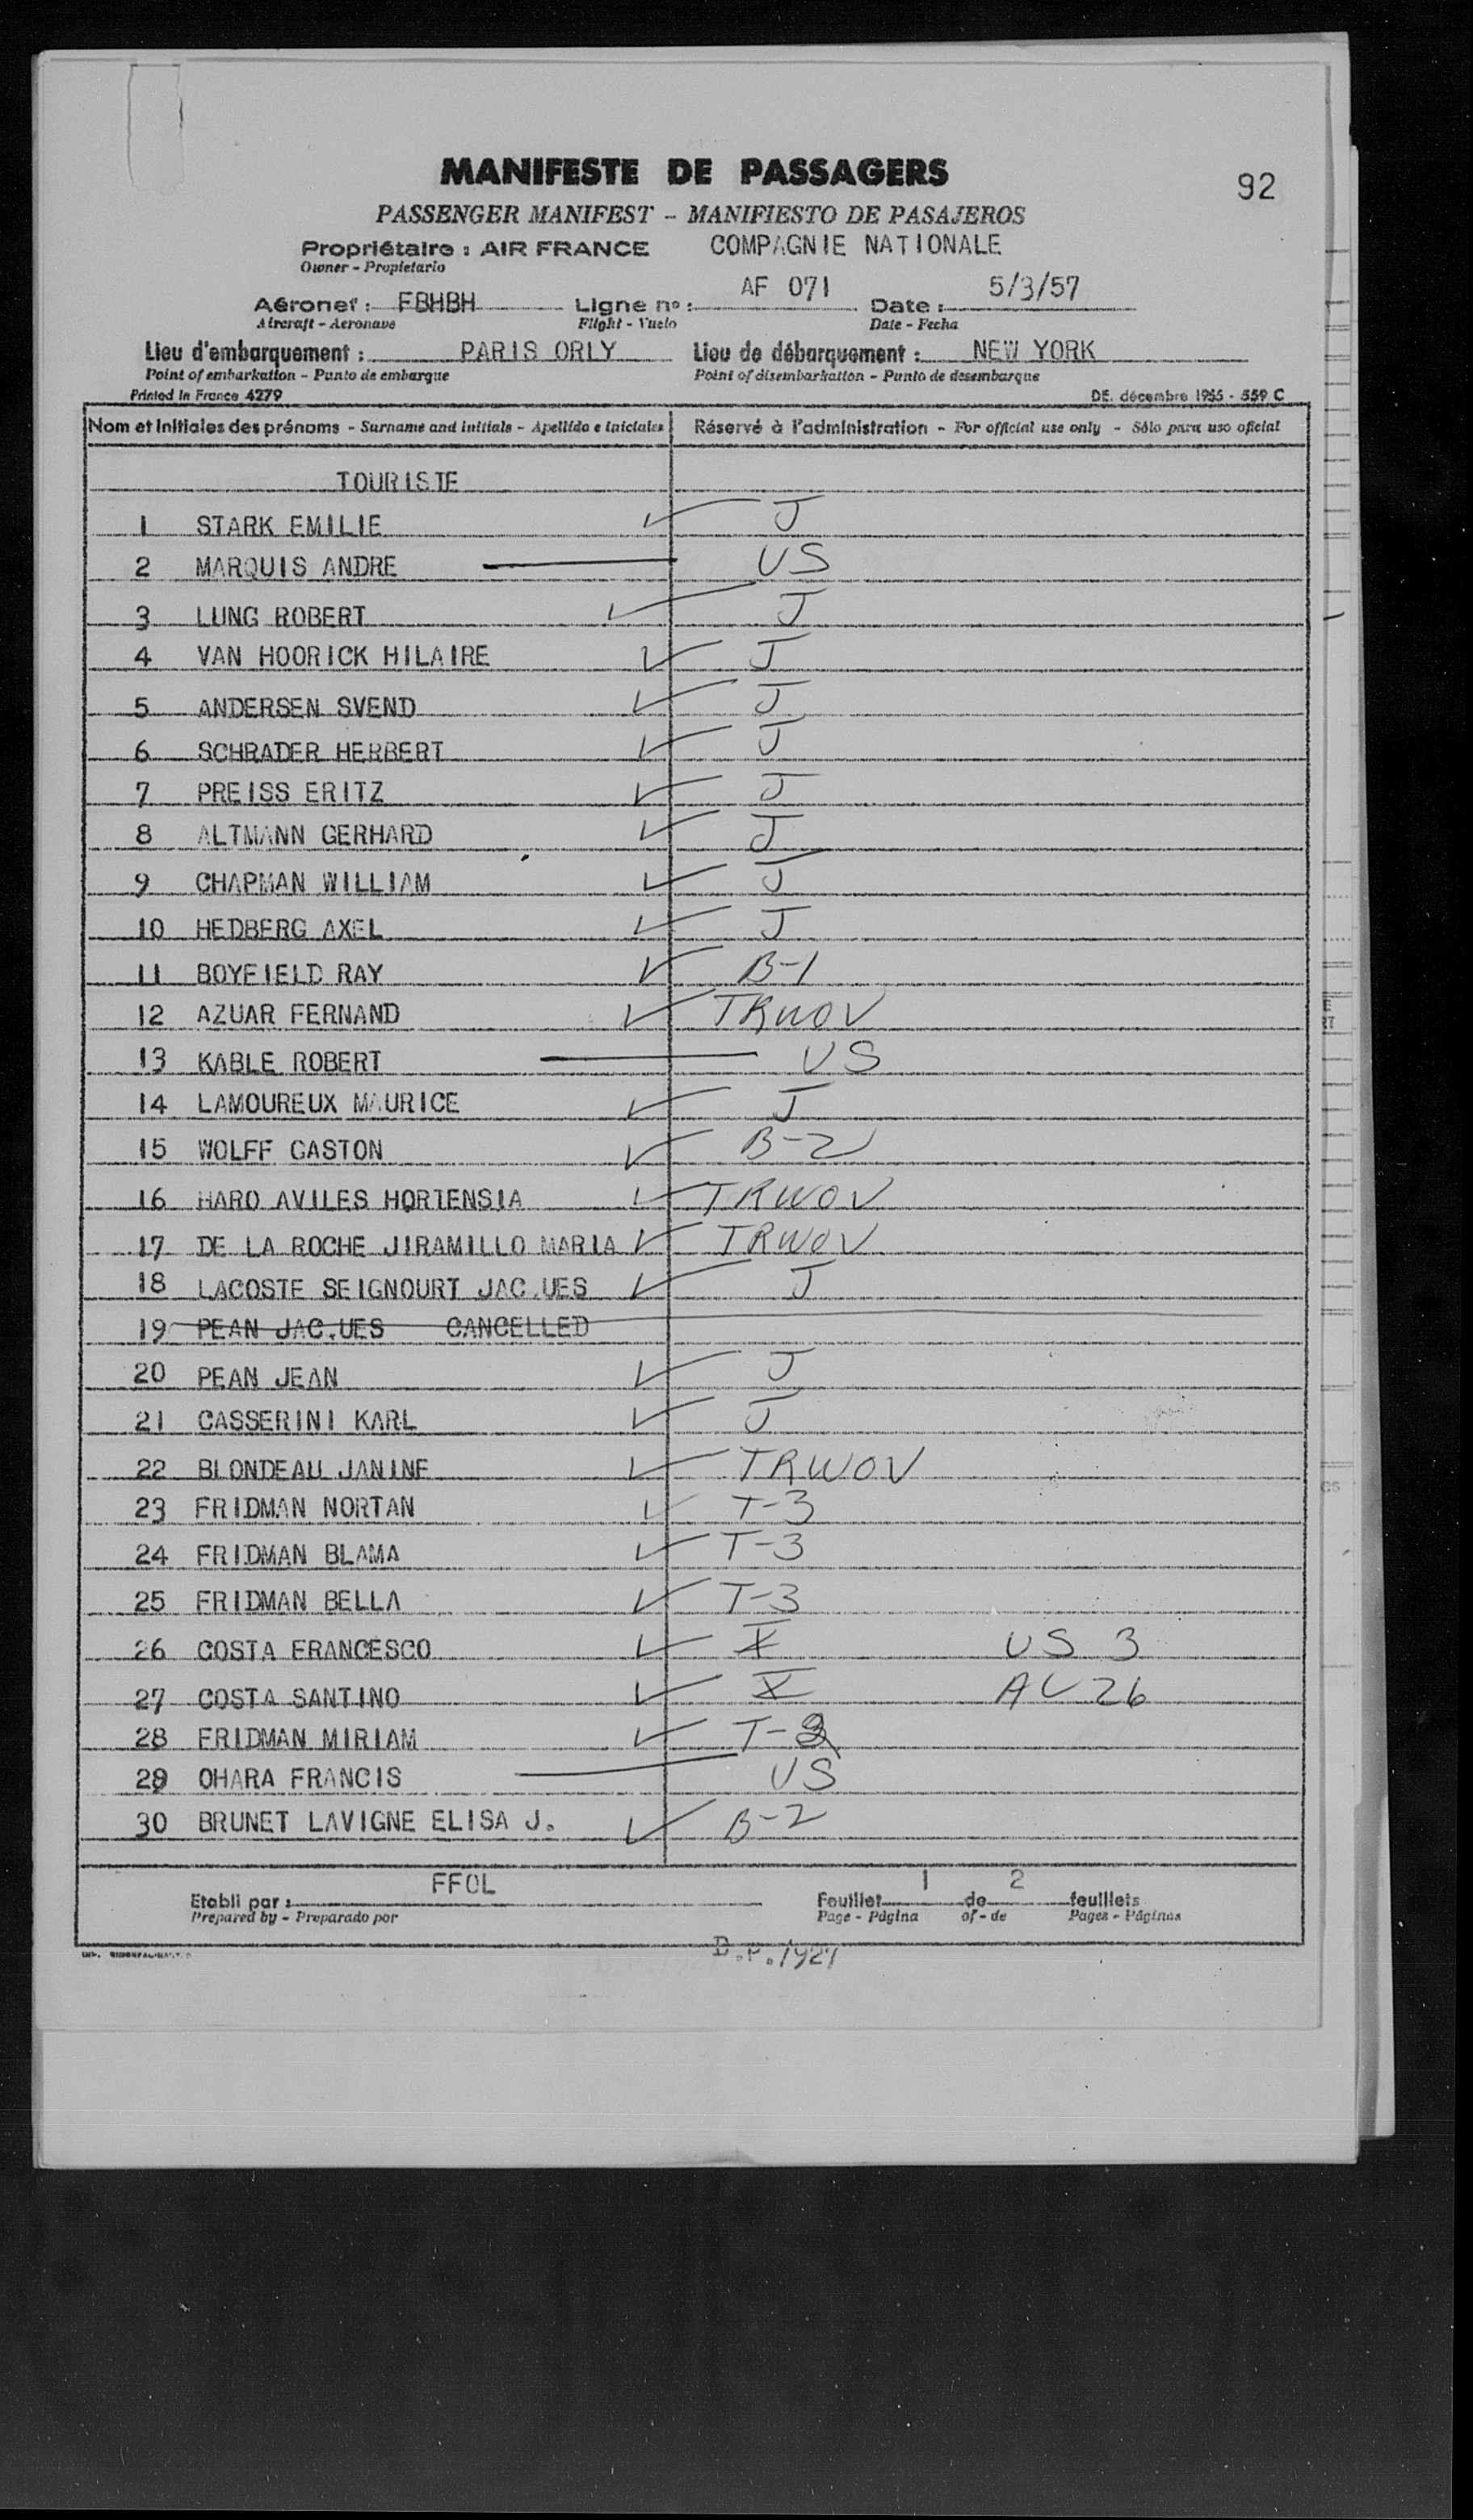 92
MANIFESTE DE PASSAGERS
PASSENGER MANIFEST - MANIFIESTO DE PASAJEROS
Propriétaire : AIR FRANCE COMPAGNIE NATIONALE
Owner - Propietario
Aéronef : FBHBH Ligne nº : AF 071 Date : 5/3/57
Aircraft - Aeronave Flight - Vuelo Date - Fecha
Lieu d'embarquement : PARIS ORLY Lieu de débarquement : NEW YORK
Point of embarkation - Punto de embarque Point of disembarkation - Punto de desembarque
Printed in France 4279 DE. décembre 1955 - 559 C
Nom et Initiales des prénoms - Surname and initials - Apellido e iniciales Réservé à l'administration - For official use only - Sólo para uso oficial
TOURISTE
1 STARK EMILIE J
2 MARQUIS ANDRE US
3 LUNG ROBERT J
4 VAN HOORICK HILAIRE J
5 ANDERSEN SVEND J
6 SCHRADER HERBERT J
7 PREISS ERITZ J
8 ALTMANN GERHARD J
9 CHAPMAN WILLIAM J
10 HEDBERG AXEL J
11 BOYFIELD RAY B-1
12 AZUAR FERNAND TRWOV
13 KABLE ROBERT US
14 LAMOUREUX MAURICE J
15 WOLFF GASTON B-2
16 HARO AVILES HORTENSIA TRWOV
17 DE LA ROCHE JIRAMILLO MARIA TRWOV
18 LACOSTE SEIGNOURT JAC.UES J
19 PEAN JAC.UES CANCELLED
20 PEAN JEAN J
21 CASSERINI KARL J
22 BLONDEAU JANINE TRWOV
23 FRIDMAN NORTAN T-3
24 FRIDMAN BLAMA T-3
25 FRIDMAN BELLA T-3
26 COSTA FRANCESCO X US 3
27 COSTA SANTINO X AL 26
28 FRIDMAN MIRIAM T-3
29 OHARA FRANCIS US
30 BRUNET LAVIGNE ELISA J. B-2
Etabli par : FFOL Feuillet 1 de 2 feuillets
Prepared by - Preparado por Page - Página of - de Pages - Páginas
D.P.1927